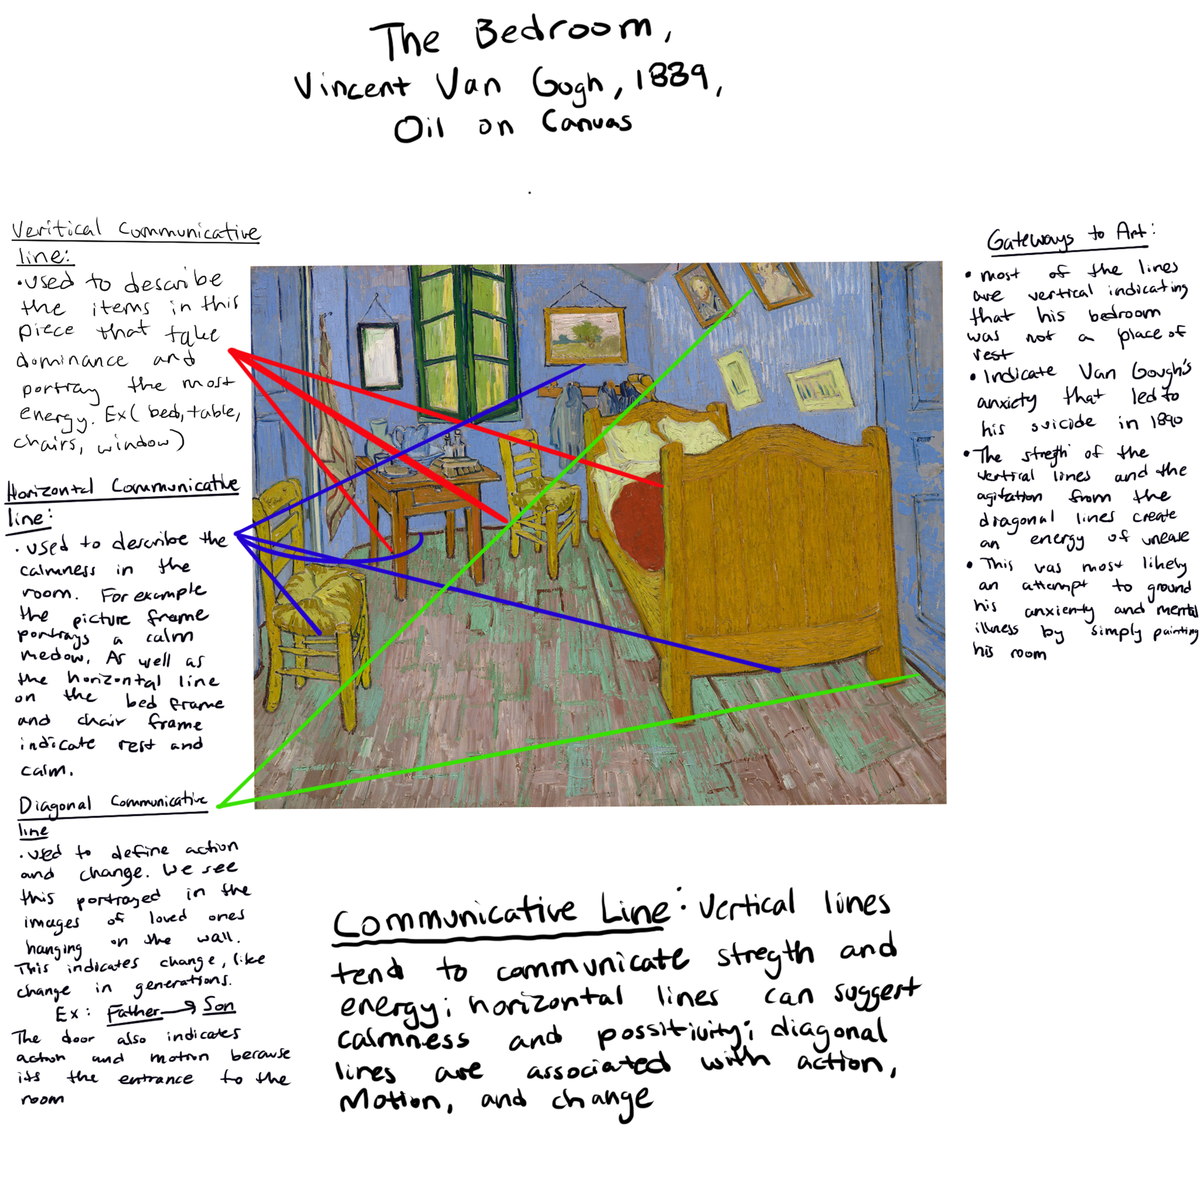 The Bedroom,
Vincent Van Gogh, 1889,
Oil on Canvas
Veritical Communicative
line:
• used to describe
the items in this
piece that take
dominance and
portray the most
energy. Ex( bed, table,
chairs, window)
Horizontal Communicative
line:
• used to describe the
calmness in the
room. For example
the picture frame
portrays a calm
medow. As well as
the horizontal line
on the bed frame
and chair frame
indicate rest and
calm.
Diagonal Communicative
line
• used to define action
and change. We see
this portrayed in the
images of loved ones
hanging on the wall.
This indicates change, like
change in generations.
Ex: Father → Son
The door also indicates
action and motion because
its the entrance to the
room
Gateways to Art:
• most of the lines
are vertical indicating
that his bedroom
was not a place of
rest
• Indicate Van Gough's
anxiety that led to
his suicide in 1890
• The stregth of the
vertical lines and the
agitation from the
diagonal lines create
an energy of unease
• This was most likely
an attempt to ground
his anxienty and mental
illness by simply painting
his room
Communicative Line: Vertical lines
tend to communicate stregth and
energy; horizontal lines can suggest
calmness and possitivity; diagonal
lines are associated with action,
Motion, and change